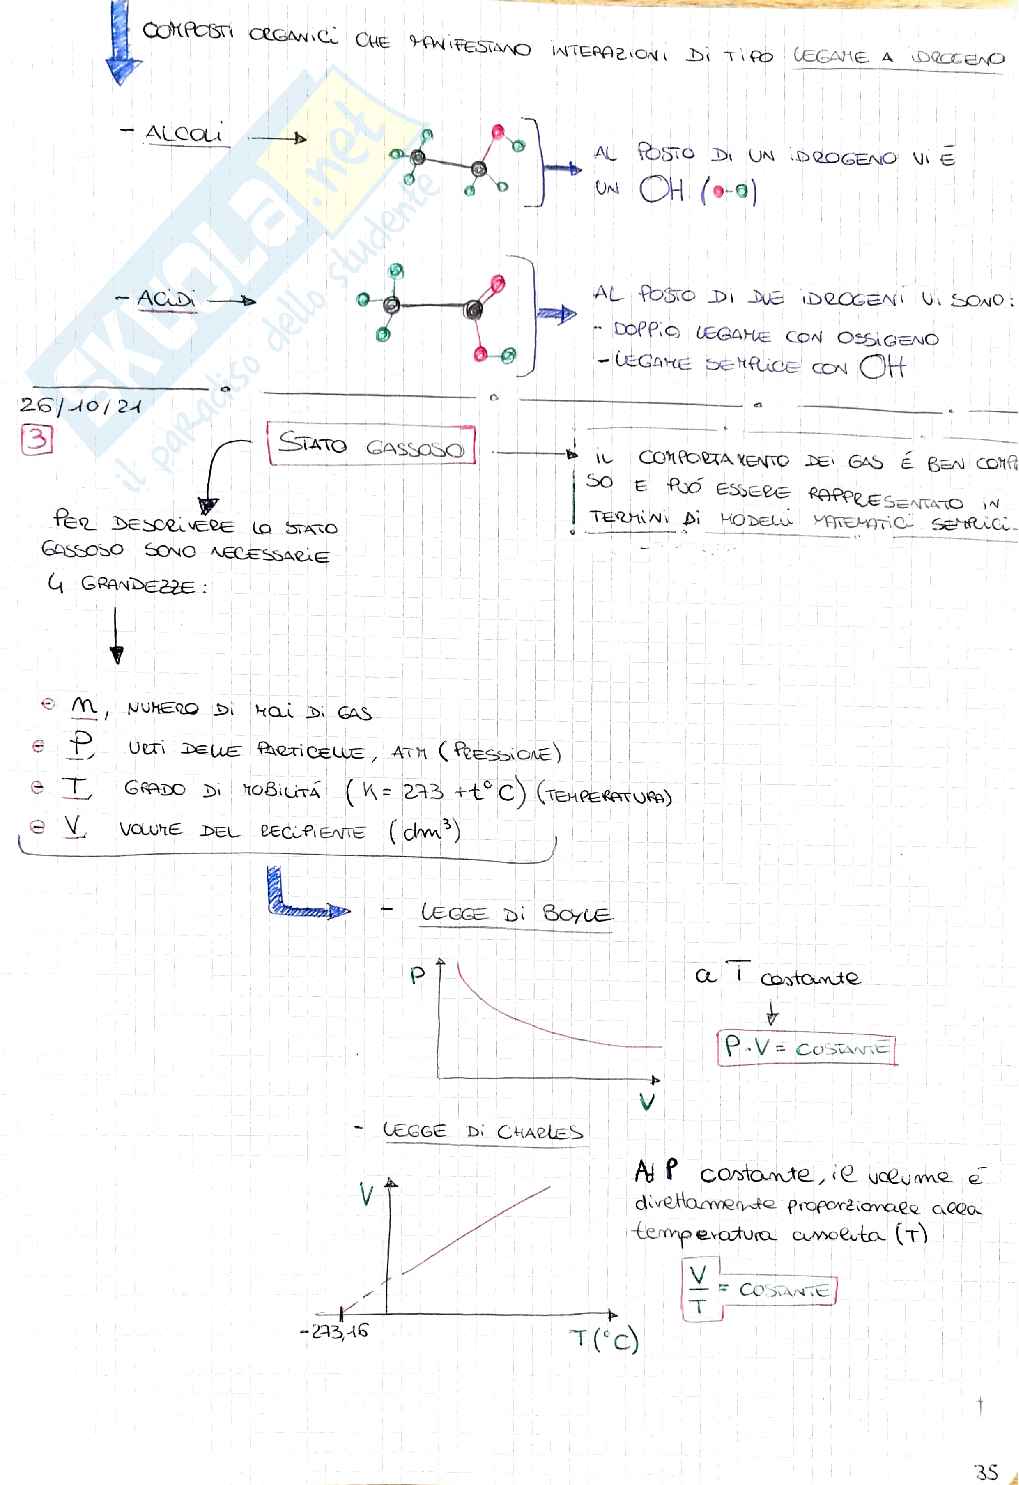 COMPOSTI ORGANICI CHE MANIFESTANO INTERAZIONI DI TIPO LEGAME A IDROGENO
- ALCOLI
AL POSTO DI UN IDROGENO VI È
UN OH ( - )
- ACIDI
AL POSTO DI DUE IDROGENI VI SONO:
- DOPPIO LEGAME CON OSSIGENO
- LEGAME SEMPLICE CON OH
SKUOLA.net
il paradiso dello studente
26/10/21
3
STATO GASSOSO
IL COMPORTAMENTO DEI GAS É BEN COMP
SO E PUÓ ESSERE RAPPRESENTATO IN
TERMINI DI MODELLI MATEMATICI SEMPLICI.
PER DESCRIVERE LO STATO
GASSOSO SONO NECESSARIE
4 GRANDEZZE:
n, NUMERO DI MOLI DI GAS
P, URTI DELLE PARTICELLE, ATM (PRESSIONE)
T, GRADO DI MOBILITÁ (K = 273 + t°C) (TEMPERATURA)
V, VOLUME DEL RECIPIENTE (dm³)
- LEGGE DI BOYLE
P
V
a T costante
P · V = COSTANTE
- LEGGE DI CHARLES
V
-273,16
T(°C)
Ad P costante, il volume é
direttamente proporzionale alla
temperatura assoluta (T)
V
T
= COSTANTE
35